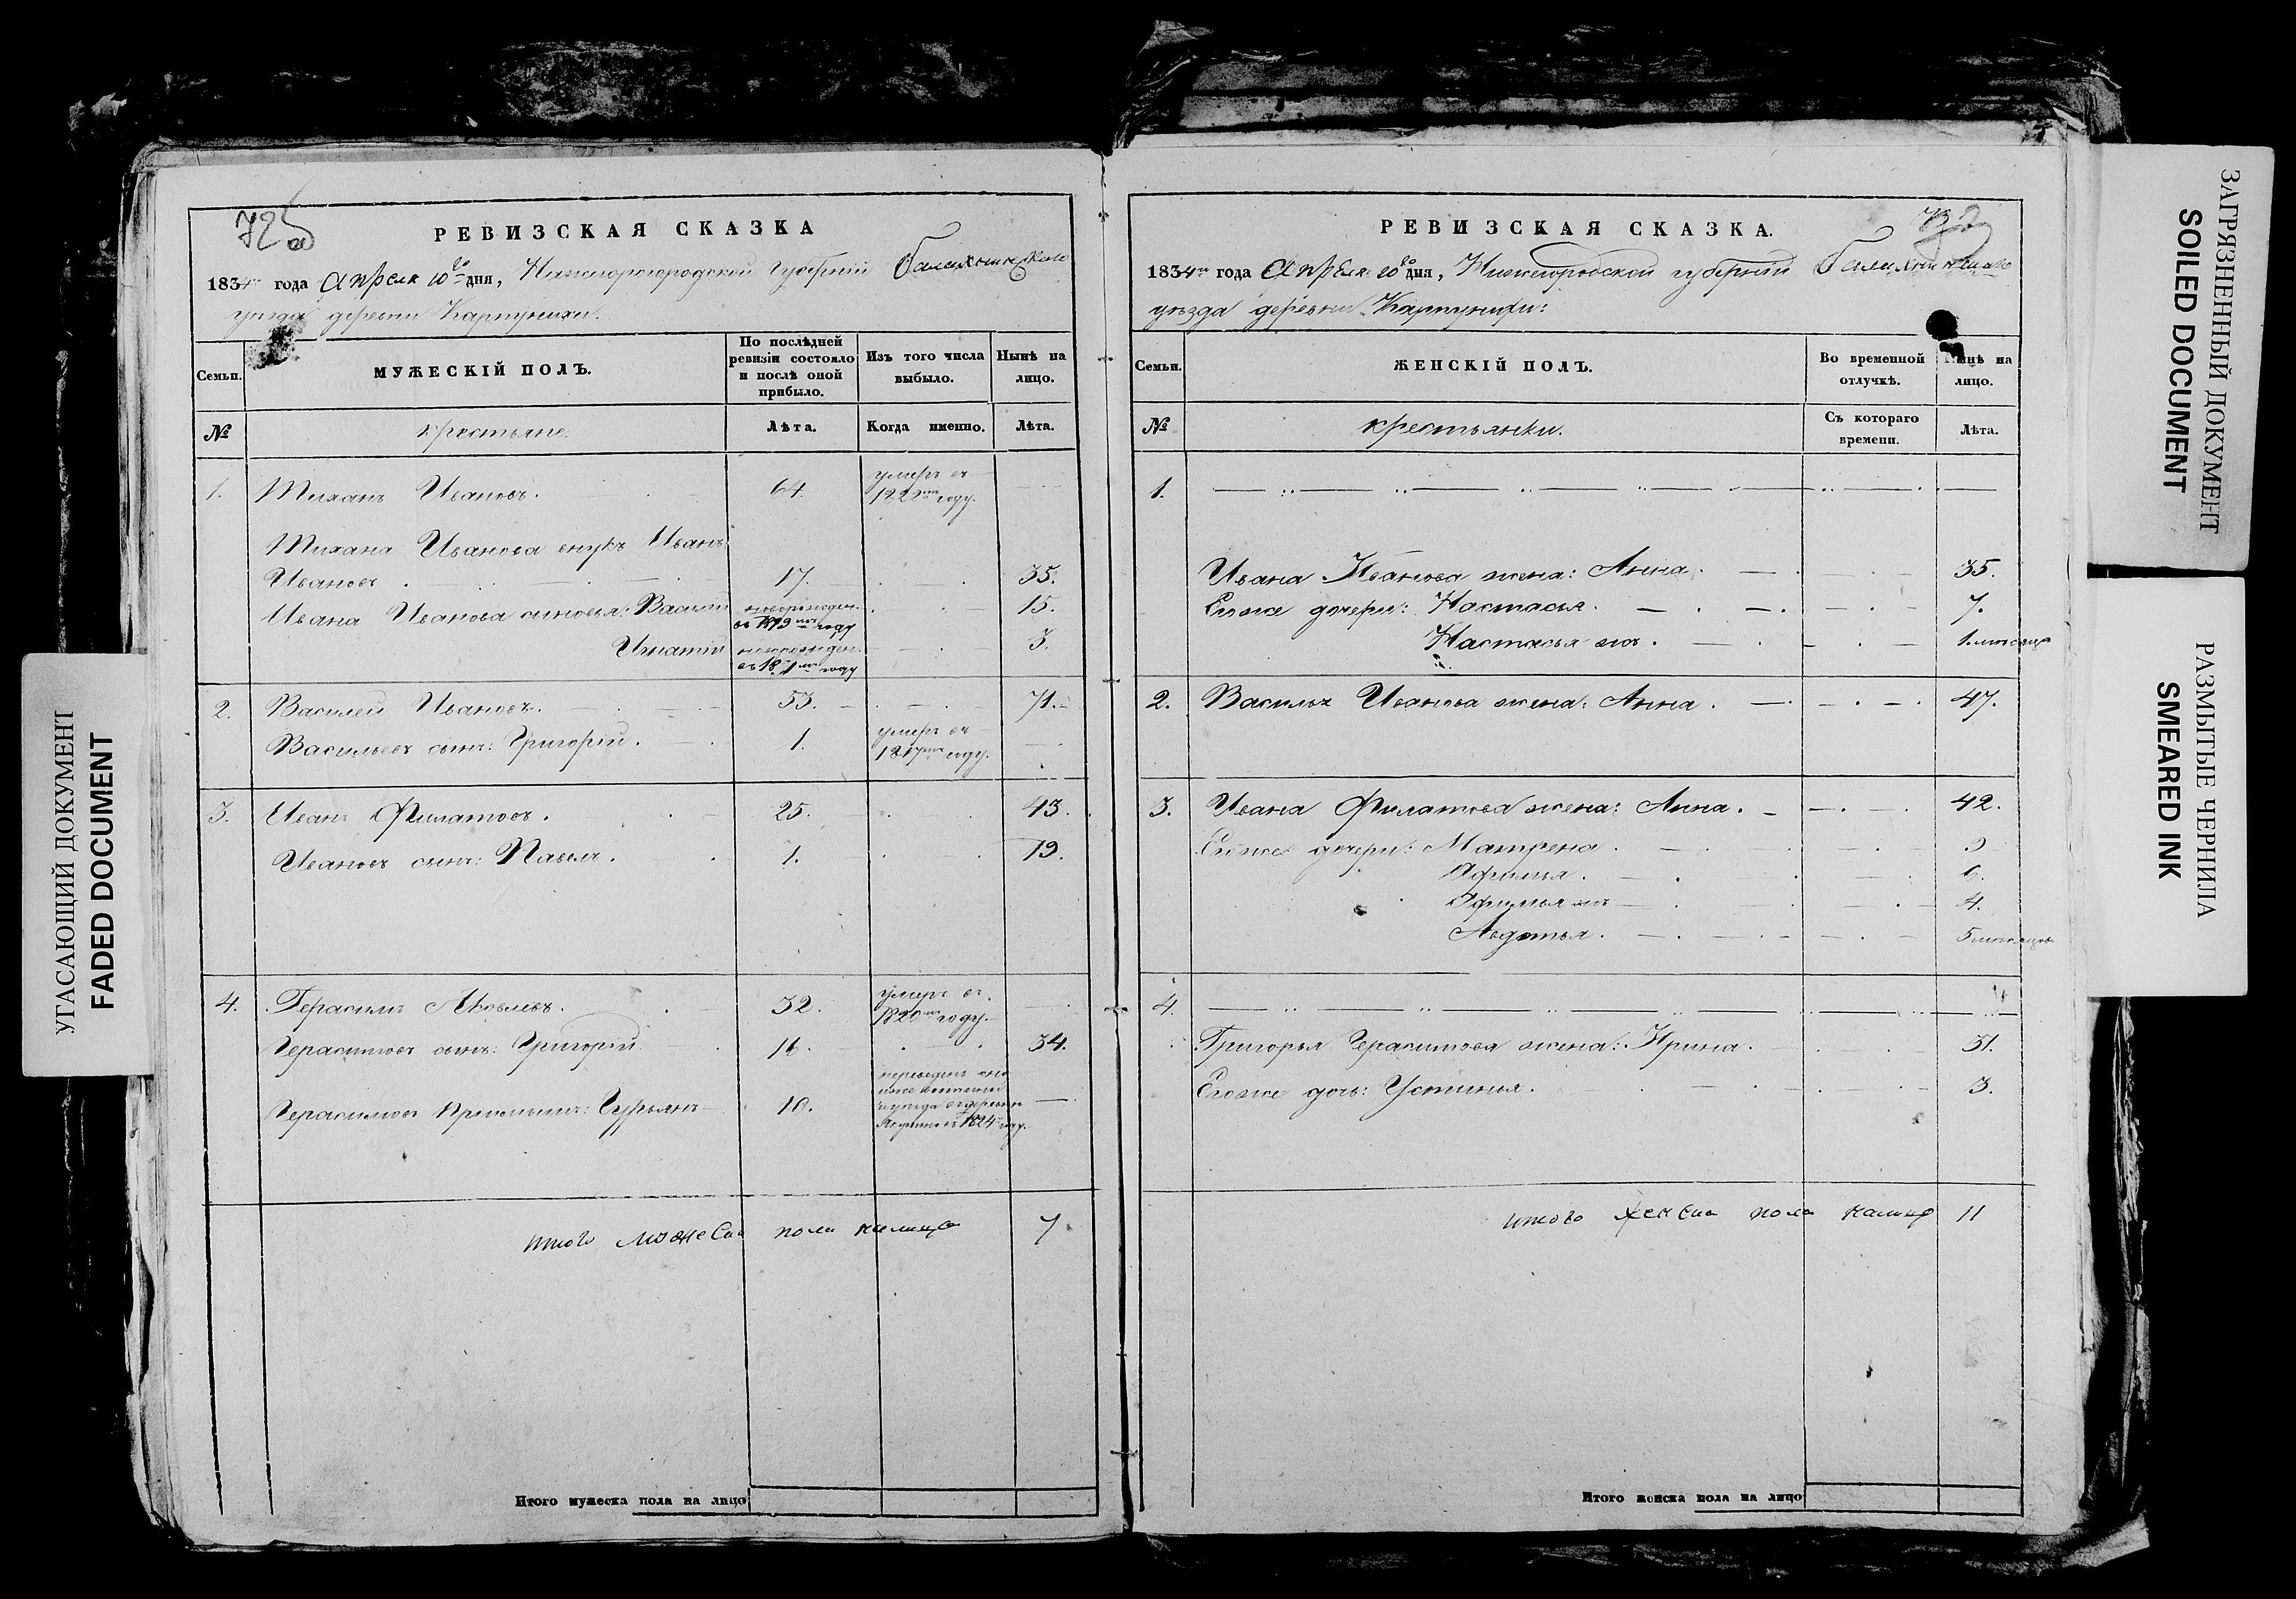 УГАСАЮЩИЙ ДОКУМЕНТ
FADED DOCUMENT
72об
РЕВИЗСКАЯ СКАЗКА
1834го года Апреля 10го дня, Нижегородской Губернiи Балахнинскаго
уезда деревни
Семьи.
МУЖЕСКІЙ ПОЛЪ.
По послѣдней ревизіи состояло и послѣ оной прибыло.
Изъ того числа выбыло.
Нынѣ на лицо.
№
крестьяне.
Лѣта.
Когда именно.
Лѣта.
1. Ивановъ. 64. умеръ въ году.
Иванова внукъ Иванъ
Ивановъ 17. 35.
Ивана Иванова сыновья: Василiй новорожден. 15.
въ году
Игнатiй новорожден. 3.
году
2. Василей Ивановъ. 53. 71.
Васильевъ сынъ: Григорiй. 1. умеръ въ году.
3. Иванъ Филатовъ. 25. 43.
Ивановъ сынъ: Павелъ. 1. 19.
4. Герасимъ Яковлевъ. 32. умеръ въ 1820мъ году.
Герасимовъ сынъ: Григорiй 16. 34.
Герасимовъ прiемышъ: Гурьянъ 10. переведенъ уезда въ деревню въ 1824 году.
итого мужеска пола налицо 7
Итого мужеска пола на лицо
РЕВИЗСКАЯ СКАЗКА.
1834го года Апреля 10го дня, Нижегородской губернiи Балахнинскаго
уезда деревни
Семьи.
ЖЕНСКІЙ ПОЛЪ.
Во временной отлучкѣ.
Нынѣ на лицо.
№
крестьянки.
Съ котораго времени.
Лѣта.
1.
Ивана Иванова жена: Анна. 35.
Ево же дочери: Настасья. 7.
Настасья 1 месяца
2. Василья Иванова жена: Анна. 47.
3. Ивана Филатова жена: Анна. 42.
Ево же дочери: Матрена.
Афимья. 6.
Афимья 4.
Авдотья. 5 месяцовъ
4.
Григорья Герасимова жена: Ирина. 31.
Ево же дочь: Устинья. 3.
итого женска пола налицо 11
Итого женска пола на лицо
ЗАГРЯЗНЕННЫЙ ДОКУМЕНТ
SOILED DOCUMENT
РАЗМЫТЫЕ ЧЕРНИЛА
SMEARED INK